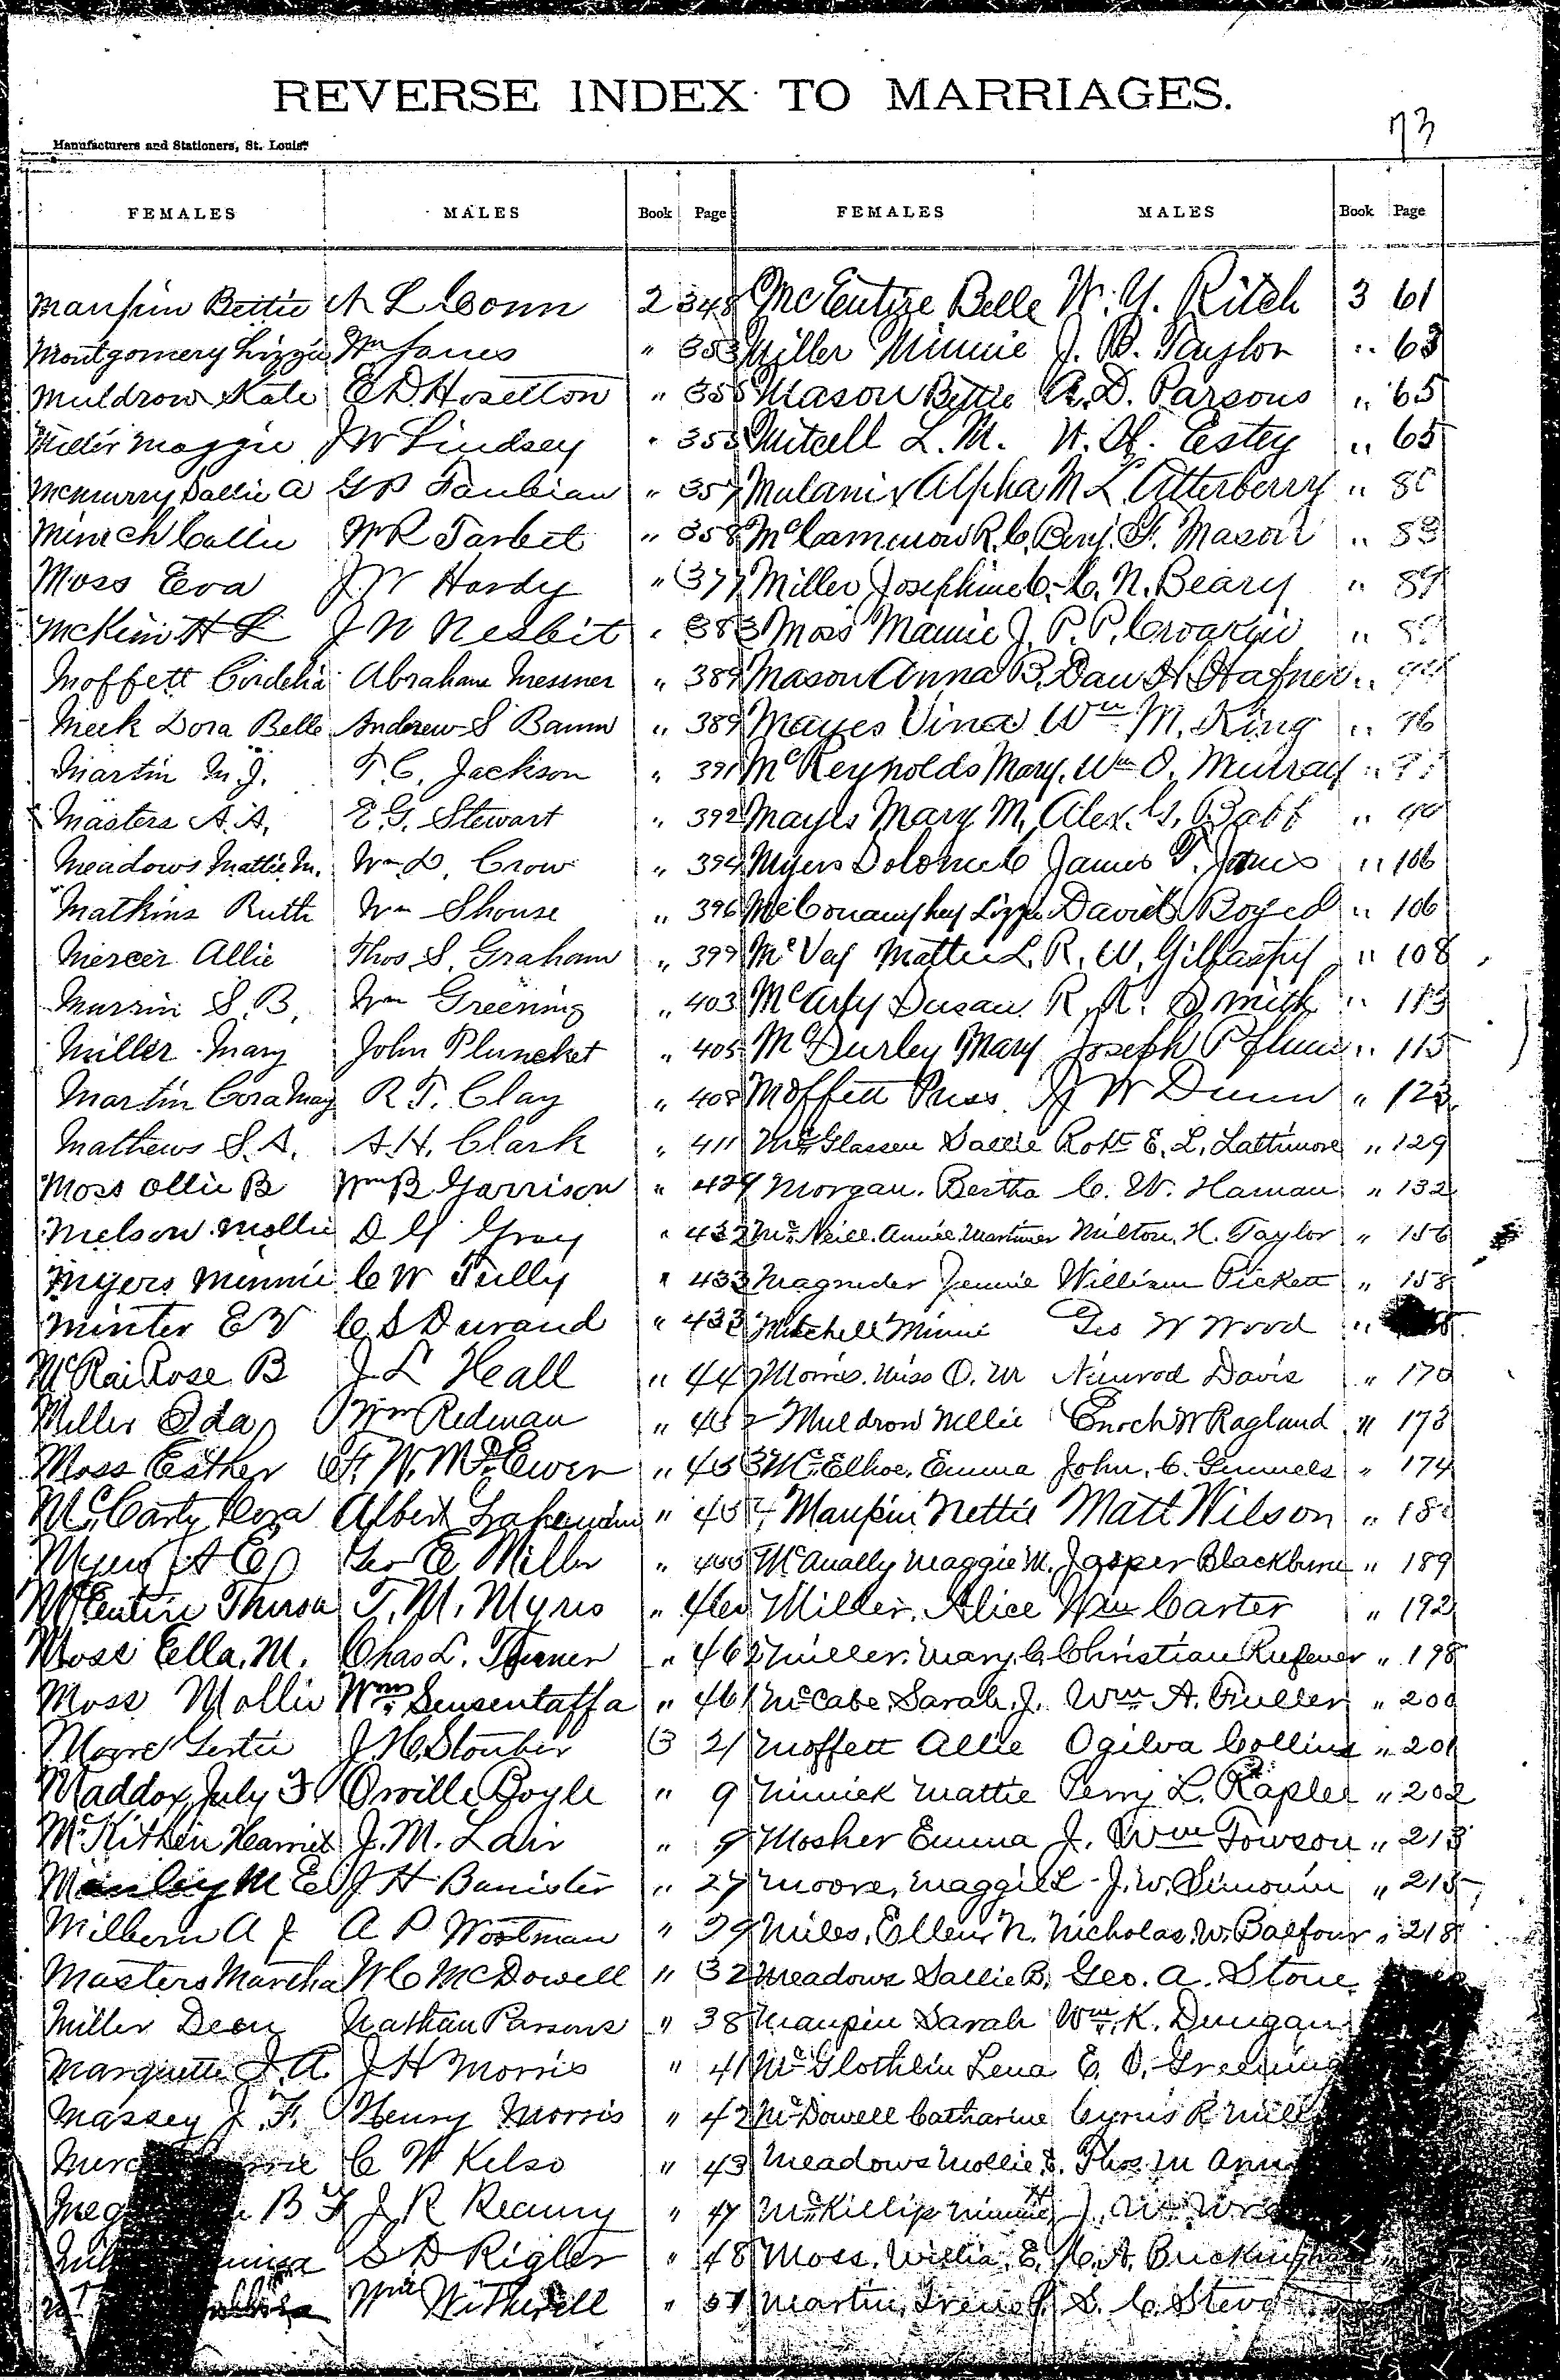 REVERSE INDEX TO MARRIAGES.
73
Manufacturers and Stationers, St. Louis.
FEMALES MALES Book Page FEMALES MALES Book Page
Maupin Bettie A L Conn 2 348
Montgomery Lizzie Wm Jones " 353
Muldrow Kate E D Hoselton " 355
Miller Maggie J W Lindsey " 355
McMurry Sallie A G P Taubian " 357
Minich Callie W R Tarbet " 358
Moss Eva J W Hardy " 377
McKim H L J N Nesbit " 383
Moffett Cordelia Abraham Messner " 389
Meek Dora Belle Andrew S Baum " 389
Martin M. J. T. C. Jackson " 391
Masters A. A. E. G. Stewart " 392
Meadows Mattie M. Wm D. Crow " 394
Mathins Ruth Wm Shouse " 396
Mercer Allie Thos S. Graham " 399
Murrin S. B. Wm Greening " 403
Miller Mary John Plunchet " 405
Martin Cora May R. T. Clay " 408
Mathews S. A. A. H. Clark " 411
Moss Ollie B Wm B Garrison " 424
Melson Mollie D G Gray " 432
Myers Minnie C W Tully " 433
Minter E V C S Durand " 433
McRai Rose B J L Heall " 447
Miller Ida Wm Redman " 452
Moss Esther F. W. McEwen " 453
McCarty Cora Albert " 454
Myers A E Geo E Miller " 455
McEntire Thursa T. M. Myres " 460
Moss Ella. M. Chas L. Turner " 462
Moss Mollie Wm Sensentaffa " 461
Moore Gertie J. H. Stouber 3 2
Maddox July F Orville Boyle " 9
McKithen Harriet J. M. Lair " 9
Manley M E J H Banister " 27
Milbern A J A P Wootman " 29
Masters Martha W C McDowell " 32
Miller Dean Nathan Parsons " 38
Marquette J. A. J H Morris " 41
Massey J. F. Henry Morris " 42
C W Kelso " 43
B F J R Reamy " 47
S D Rigler " 48
Wm Witherell " 57
McEntire Belle W. Y. Ritch 3 61
Miller Minnie J. B. Taylor " 63
Mason Bettie A. D. Parsons " 65
Mitcell L. M. W. H. Estey " 65
Mulanix Alpha M L Atterberry " 80
McCammon R. C. Benj. F. Mason " 83
Miller Josephine C. C. N. Beary " 89
Moss Mamie J. P. P. Croakin "
Mason Anna B. Dan H Hafner "
Mayes Vina Wm M. King " 96
McReynolds Mary. Wm O. Murray "
Mayes Mary M. Alex. G. Babb "
Myers Dolonie C James T. Jones " 106
McConaughey Lizzie David Boyed " 106
McVay Mattie L. R. W. Gilfaspy " 108
McCarty Susan R. R. Smith " 113
McDurley Mary Joseph Pflum " 115
Moffett Miss J W Dunn " 123
McGlassen Sallie Robt E. L. Lattimore " 129
Morgan. Bertha C. W. Haman " 132
McNeill. Annie. Mortimer Milton. H. Taylor " 156
Magruder Jennie William Pickett " 158
Mitchell Minnie Geo W Wood "
Morris. Miss O. M Nimrod Davis " 170
Muldrow Nellie Enoch W Ragland " 173
McElhoe. Emma John. C. Gunnels " 174
Maupin Nettie Matt Wilson "
McAnally Maggie M. Jasper Blackburn " 189
Miller. Alice Wm Carter " 192
Miller. Mary. C. Christian Rufener " 198
McCabe Sarah. J. Wm A. Fuller " 200
Moffett Allie Ogilva Collins " 201
Minick Mattie Perry L. Rapler " 202
Mosher Emma J. Wm Towson " 213
Moore. Maggie L J. W. Simonin " 215
Miles. Ellen. N. Nicholas. W. Balfour " 218
Meadows Sallie B. Geo. A. Stone
Maupin Sarah Wm K. Dungan
McGlothlin Lena E. O. Greening
McDowell Catharine Cyrus R
Meadows Mollie E. Thos. M
McKillip Minnie J. W.
Moss. Willia. E. A. Buckingham
Martin, Irene S. C.